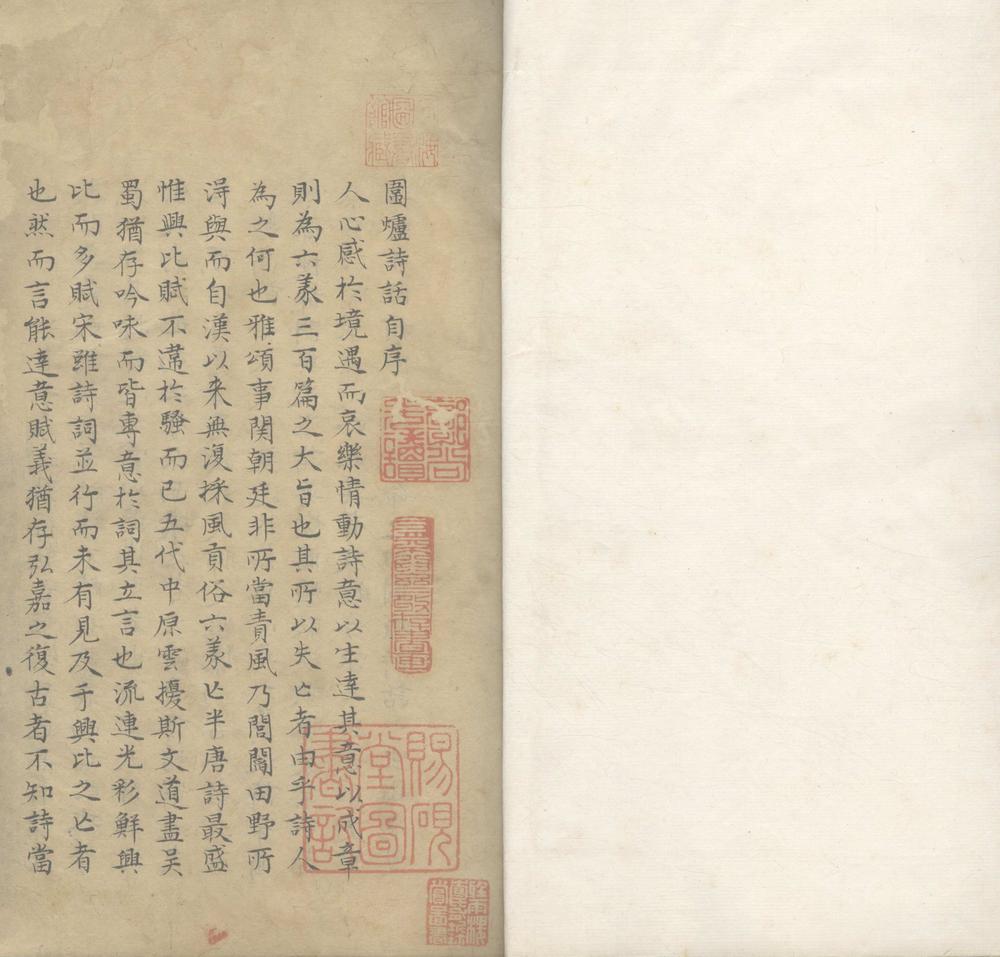 圍爐詩話自序
人心感於境遇而哀樂情動詩意以生達其意以成章
則為六義三百篇之大旨也其所以失亡者由乎詩人
為之何也雅頌事関朝廷非所當責風乃閭閻田野所
淂與而自漢以来無復採風貢俗六義亡半唐詩最盛
惟興比賦不遠於騷而已五代中原雲擾斯文道盡吴
蜀猶存吟咏而皆專意於詞其立言也流連光彩鮮興
比而多賦宋雖詩詞並行而未有見及乎興比之亡者
也然而言能達意賦義猶存弘嘉之復古者不知詩當
賜硯堂圖書記